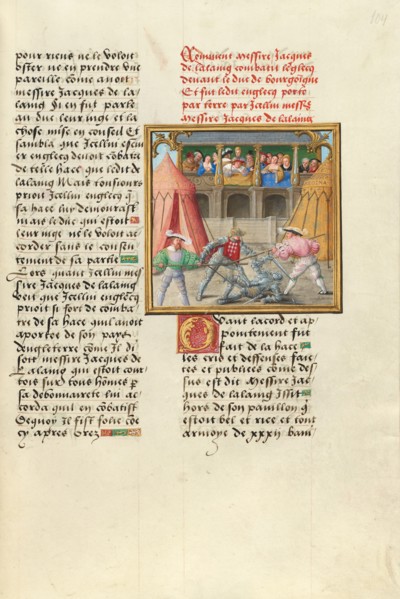 pour riens ne le voloit
oster ne en prendre une
pareille come avoit
messire Jacques de la
laing Si en fut parle
au duc leur juge et la
chose mise en conseil Et
sambla que Icellui escui
er englecq devoit cobatre
de telle hace que ledit de
lalaing Mais tousiours
prioit Icellui englecq q
sa hace luy demourast
mais le duc qui estoit
leur juge ne le voloit ac
corder sans le consen
tement de sa partie
Lors quant Icellui mes
sire Jacques de lalaing
veit que Icellui englecq
prioit si fort de comba
tre de sa hace quil avoit
aportee de son pays
dengleterre come Il di
soit messire Jacques de
Lalaing qui estoit cour
tois sur tous homes p
sa debonnairete luy ac
corda quil en cobatist
De quoy Il fist folie coe
cy apres orrez
104
Comment messire Jacques
de lalaing combatit lenglecq
devant le duc de bourgoigne
Et fut ledit englecq porte
par terre par Icellui mess
messire Jacques de lalaing
Quant lacord et ap
pointement fut
fait de la hace
les cris et deffenses fai
tes et publiees come des
sus est dit Messire Jac
ques de lalaing Issit
hors de son pavillon q
estoit bel et rice et tout
armoye de xxxij ban